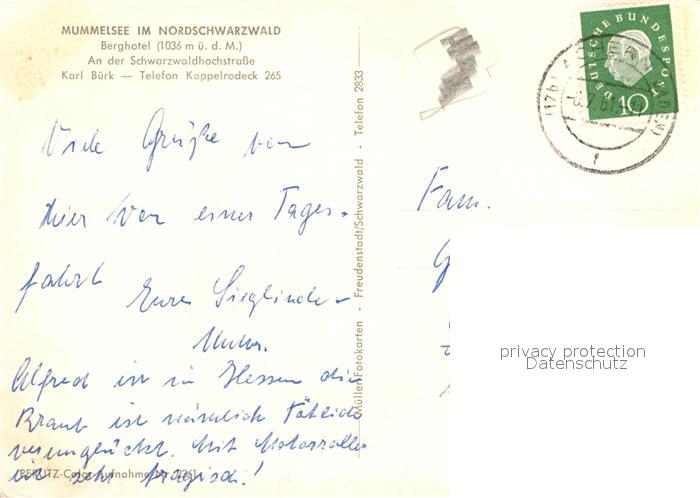 MUMMELSEE IM NORDSCHWARZWALD
Berghotel (1036 m ü. d. M.)
An der Schwarzwaldhochstraße
Karl Bürk — Telefon Kappelrodeck 265
Viele Grüße von
hier von einer Tages-
fahrt
Eure Sieglinde
Alfred ist in Hessen die
Braut ist nämlich tötlich
verunglückt. Mit Motorroller
sehr tragisch!
PERUTZ-Color-Aufnahme Nr.
Müller Fotokarten - Freudenstadt/Schwarzwald - Telefon 2833
DEUTSCHE BUNDESPOST
10
Fam.
privacy protection
Datenschutz